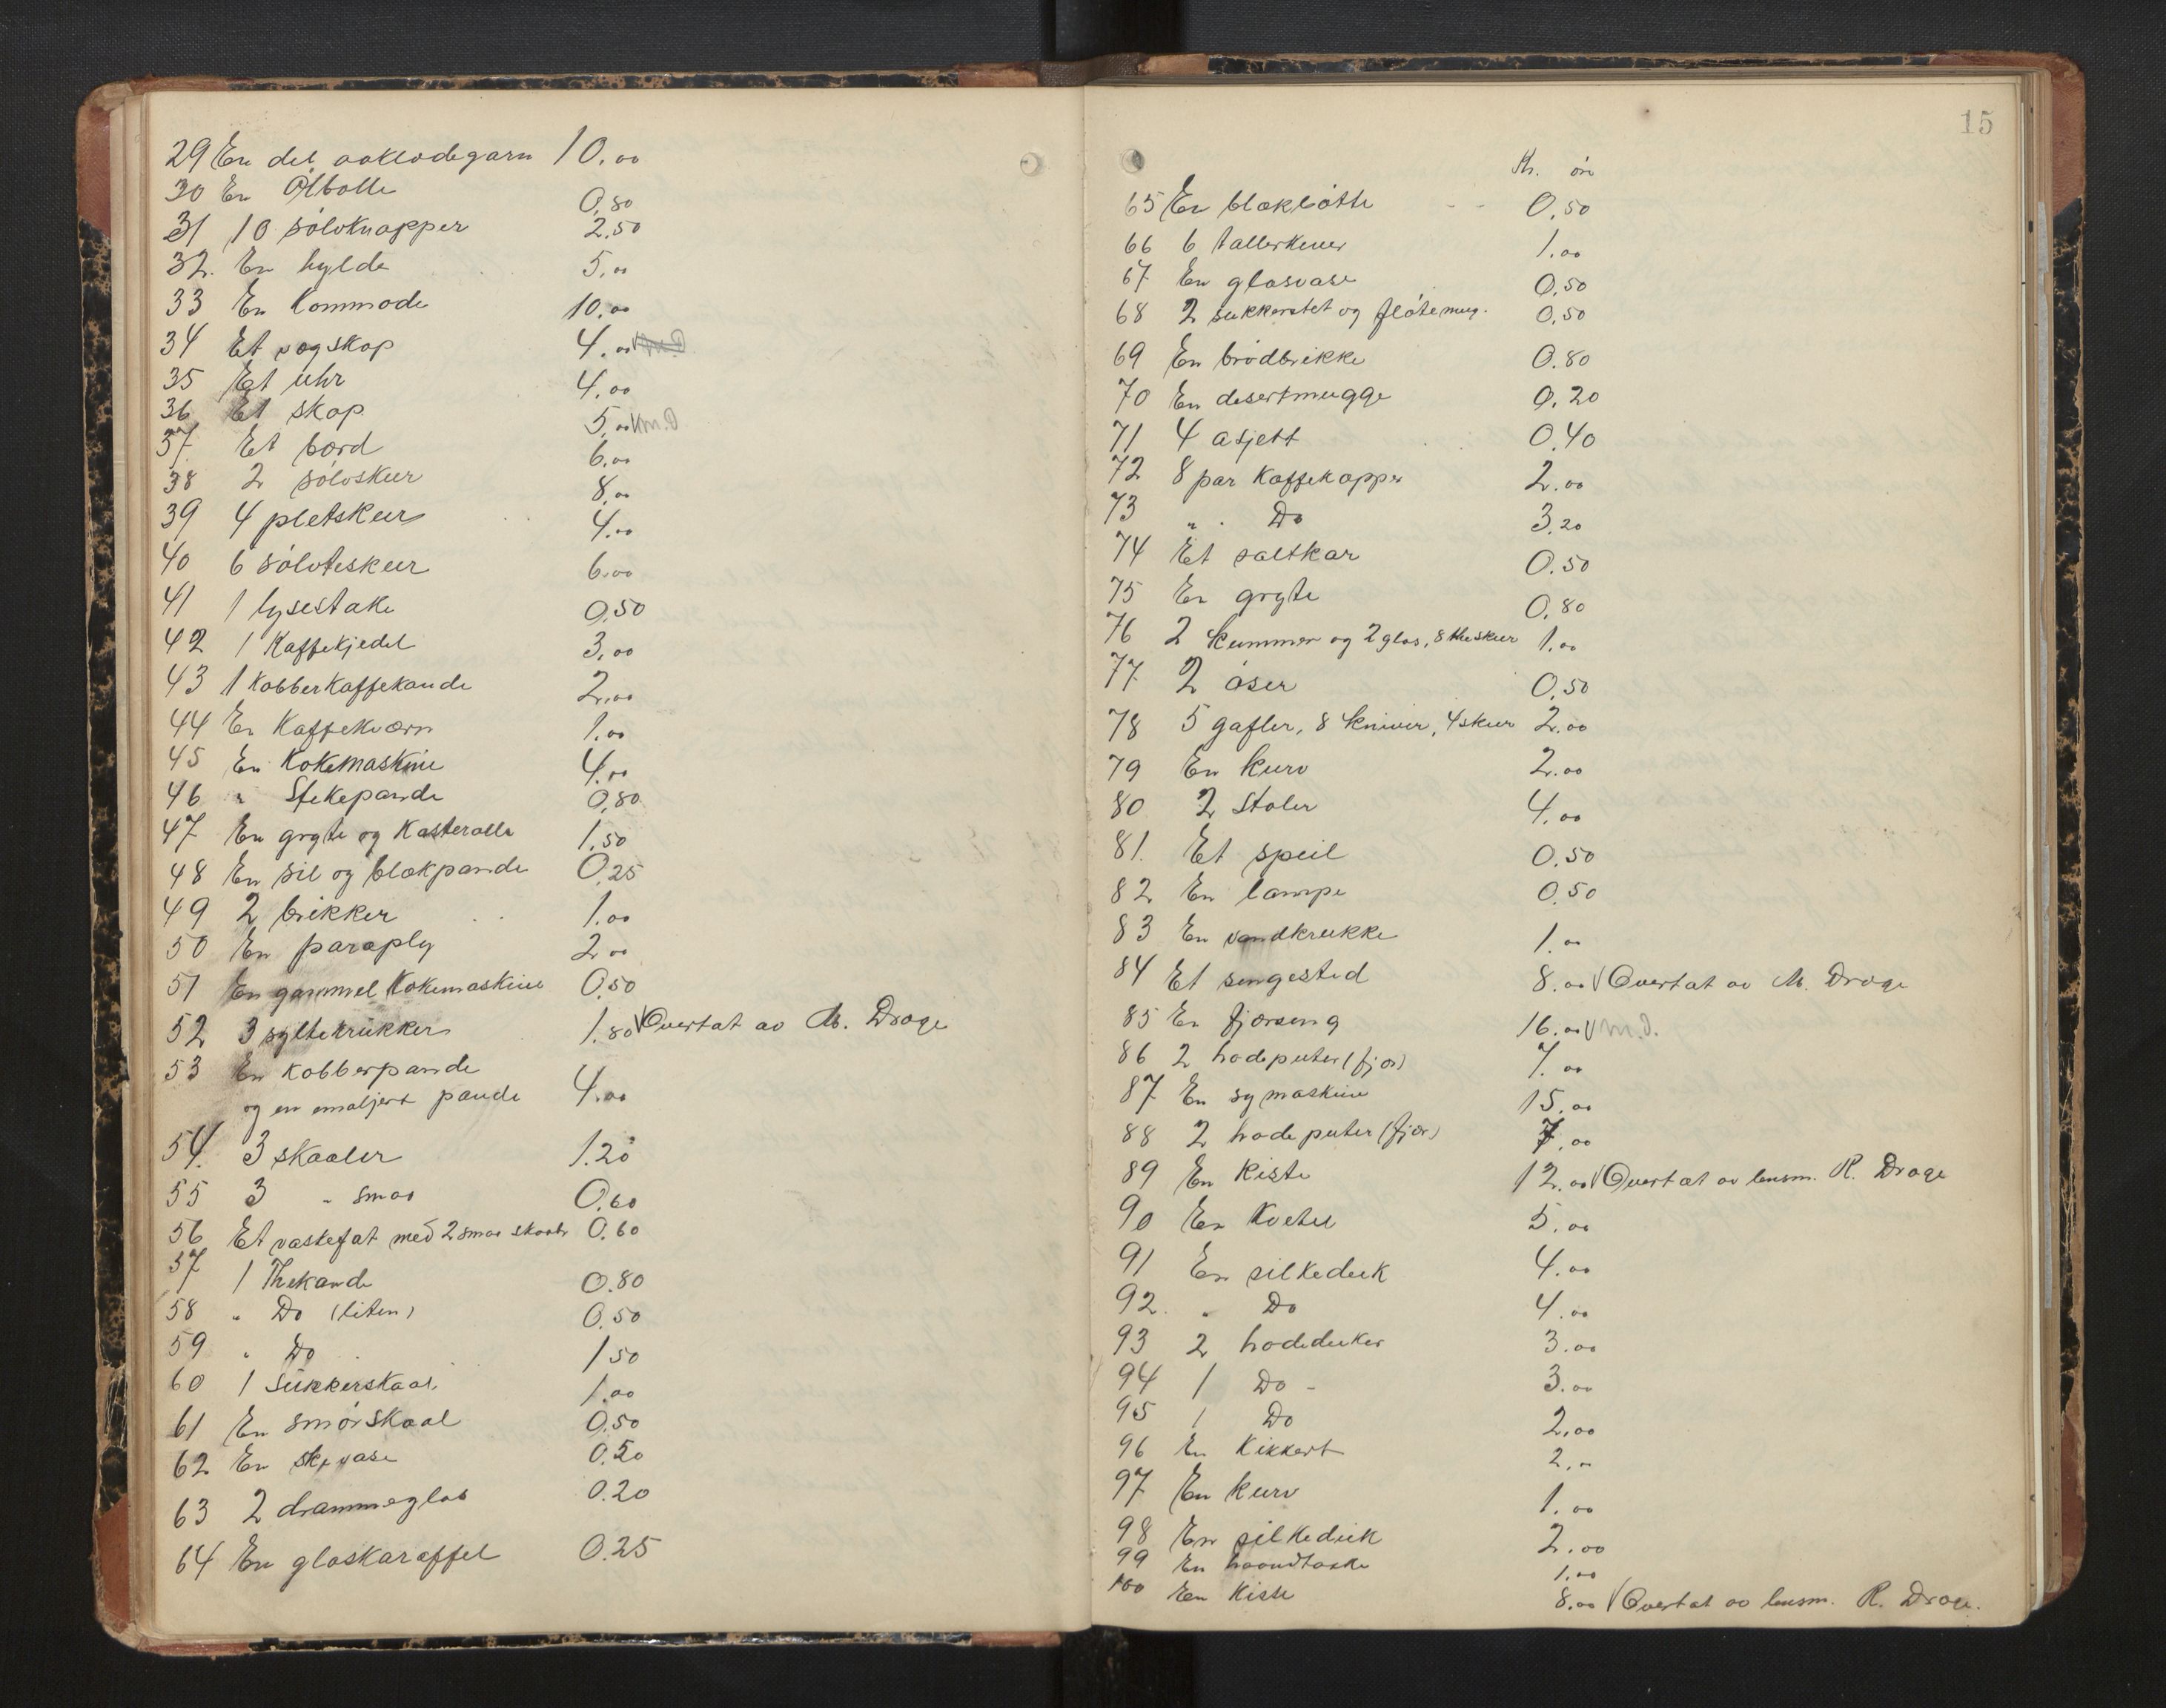 29 En del aaklædegarn 10.00
30 En Ølbolle 0.80
31 10 sølvknapper 2.50
32. En hylde 5.00
33 En Kommode 10.00
34 Et vægskap 4.00
35 Et uhr 4.00
36 Et skap 5.00 M.D
37 Et bord 6.00
38 2 sølvskeer 8.00
39 4 pletskeer 4.00
40 6 sølvteskeer 6.00
41 1 lysestake 0.50
42 1 Kaffekjedel 3.00
43 1 Kobberkaffekande 2.00
44 En Kaffekværn 1.00
45 En Kokemaskine 4.00
46 " Stekepande 0.80
47 En gryte og Kasterolle 1.50
48 En sil og blekpande 0.25
49 2 brikker 1.00
50 En paraply 2.00
51 En gammel Kokemaskine 0.50
52 3 syltekrukker 1.80 Overtat av M. Drage
53 En Kobberpande
og en emaljert pande 4.00
54. 3 skaaler 1.20
55 3 " smaa 0.60
56 Et vaskefat med 2 smaa skaaler 0.60
57 1 Thekande 0.80
58 " Do (liten) 0.50
59 " Do 1.50
60 1 Sukkerskaal. 1.00
61 En smørskaal 0.50
62 En vase 0.50
63 2 drammeglas 0.20
64 En glaskaraffel 0.25
15
Kr. øre
65 En blekbøtte 0.50
66 6 tallerkener 1.00
67 En glasvase 0.50
68 2 sukkerstet og fløtemug. 0.50
69 En brødbrikke 0.80
70 En desertmugge 0.20
71 4 asjett 0.40
72 8 par Kaffekopper 2.00
73 " Do 3.20
74 Et saltkar 0.50
75 En gryte 0.80
76 2 Kummer og 2 glas, 8 theskeer 1.00
77 2 øser 0.50
78 5 gafler, 8 kniver, 4 skeer 2.00
79 En kurv 2.00
80 2 Stoler 4.00
81. Et speil 0.50
82 En lampe 0.50
83 En vandkrukke 1.00
84 Et sengested 8.00 Overtat av M. Drage
85 En fjærseng 16.00 M.D.
86 2 hodeputer (fjær) 7.00
87 En symaskine 15.00
88 2 hodeputer (fjær) 7.00
89 En Kiste 12.00 Overtat av lensm. R. Drage
90 En Kvetel 5.00
91 En silkeduk 4.00
92. " Do 4.00
93 2 hodeduker 3.00
94 1 Do - 3.00
95 1 Do 2.00
96 En Kikkert 2.-
97 En kurv 1.00
98 En silkeduk 2.00
99 En haandtaske 1.00
100 En Kiste 8.00 Overtat av lensm. R. Drage.